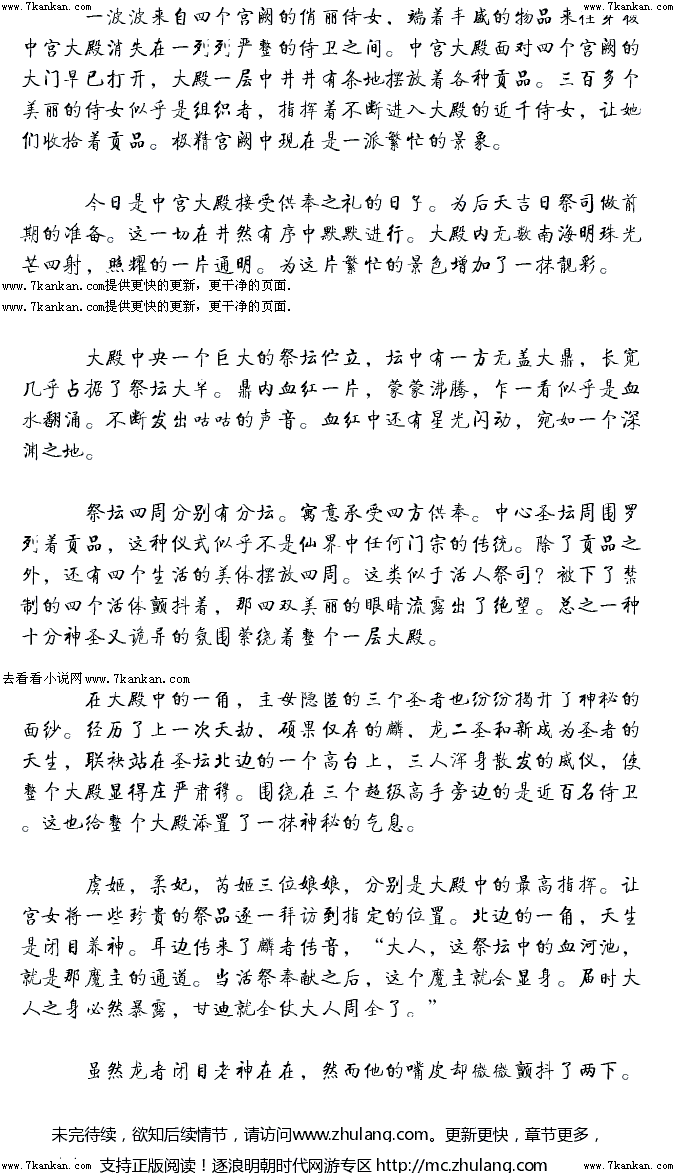 www.7kankan.com www.7kankan.com
一波波来自四个宫阙的俏丽侍女，端着丰盛的物品来往穿梭
中宫大殿消失在一列列严整的侍卫之间。中宫大殿面对四个宫阙的
大门早已打开，大殿一层中井井有条地摆放着各种贡品。三百多个
美丽的侍女似乎是组织者，指挥着不断进入大殿的近千侍女，让她
们收拾着贡品。极精宫阙中现在是一派繁忙的景象。
今日是中宫大殿接受供奉之礼的日子。为后天吉日祭司做前
期的准备。这一切在井然有序中默默进行。大殿内无数南海明珠光
芒四射，照耀的一片通明。为这片繁忙的景色增加了一抹靓彩。
www.7kankan.com提供更快的更新，更干净的页面.
www.7kankan.com提供更快的更新，更干净的页面.
大殿中央一个巨大的祭坛伫立，坛中有一方无盖大鼎，长宽
几乎占据了祭坛大半。鼎内血红一片，蒙蒙沸腾，乍一看似乎是血
水翻涌。不断发出咕咕的声音。血红中还有星光闪动，宛如一个深
渊之地。
祭坛四周分别有分坛。寓意承受四方供奉。中心圣坛周围罗
列着贡品，这种仪式似乎不是仙界中任何门宗的传统。除了贡品之
外，还有四个生活的美体摆放四周。这类似于活人祭司？被下了禁
制的四个活体颤抖着，那四双美丽的眼睛流露出了绝望。总之一种
十分神圣又诡异的氛围萦绕着整个一层大殿。
去看看小说网www.7kankan.com
在大殿中的一角，主母隐匿的三个圣者也纷纷揭开了神秘的
面纱。经历了上一次天劫，硕果仅存的麟，龙二圣和新成为圣者的
天生，联袂站在圣坛北边的一个高台上，三人浑身散发的威仪，使
整个大殿显得庄严肃穆。围绕在三个超级高手旁边的是近百名侍卫
。这也给整个大殿添置了一抹神秘的气息。
虞姬，柔妃，芮姬三位娘娘，分别是大殿中的最高指挥。让
宫女将一些珍贵的祭品逐一拜访到指定的位置。北边的一角，天生
是闭目养神。耳边传来了麟者传音，“大人，这祭坛中的血河池，
就是那魔主的通道。当活祭奉献之后，这个魔主就会显身。届时大
人之身必然暴露，甘迪就全仗大人周全了。”
虽然龙者闭目老神在在，然而他的嘴皮却微微颤抖了两下。
未完待续，欲知后续情节，请访问www.zhulang.com。更新更快，章节更多，
www.7kankan.com 支持正版阅读！逐浪明朝时代网游专区 http://mc.zhulang.com www.7kankan.com